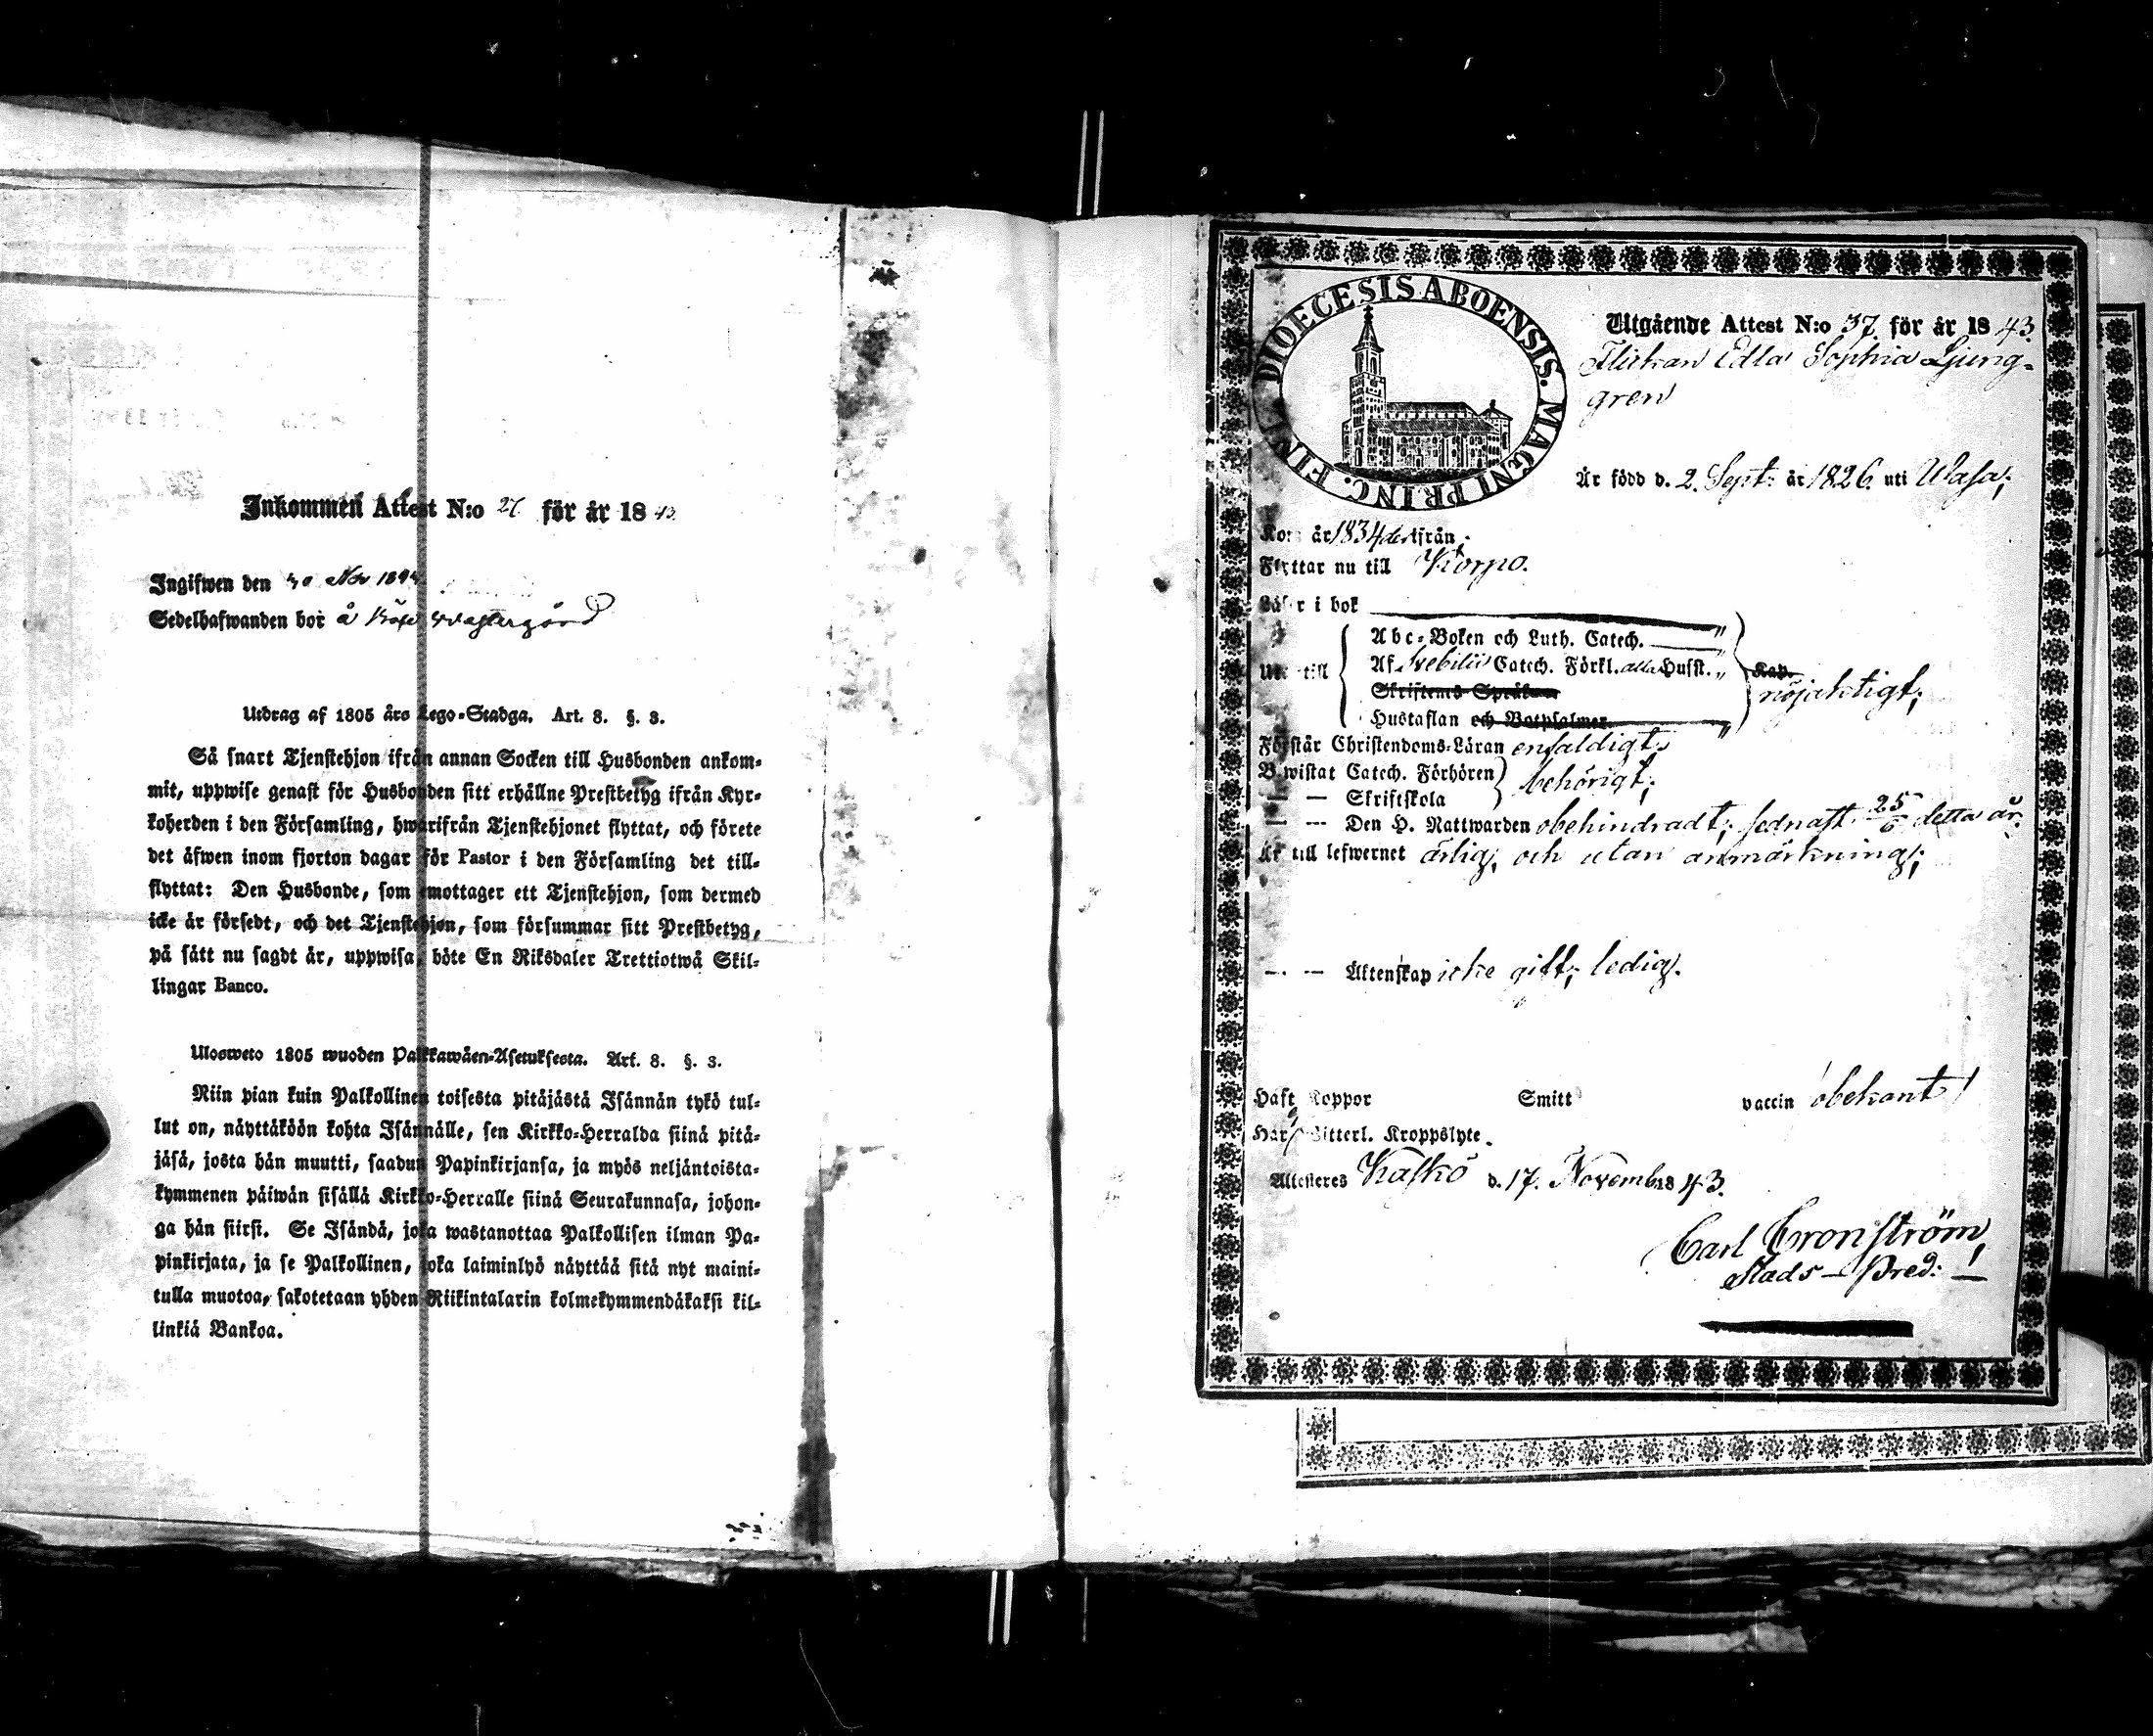 Inkommen Attest N:o 27 för år 1843
Ingifwen den 30 Nov 1843
Sedelhafwanden bor å Wästergård
Utdrag af 1805 års Lego-Stadga. Art. 8. §. 3.
Så snart Tjenstehjon ifrån annan Socken till Husbonden ankom-
mit, uppwise genast för Husbonden sitt erhållne Prestbetyg ifrån Kyr-
koherden i den Församling, hwarifrån Tjenstehjonet flyttat, och förete
det äfwen inom fjorton dagar för Pastor i den Församling det till-
flyttat: Den Husbonde, som emottager ett Tjenstehjon, som dermed
icke är försedt, och det Tjenstehjon, som försummar sitt Prestbetyg,
på sätt nu sagdt är, uppwisa, böte En Riksdaler Trettiotwå Skil-
lingar Banco.
Ulosweto 1805 wuoden Palkkawäen-Asetuksesta. Art. 8. §. 3.
Niin pian kuin Palkollinen toisesta pitäjästä Isännän tykö tul-
lut on, näyttäköön kohta Isännälle, sen Kirkko-Herralda siinä pitä-
jäsä, josta hän muutti, saadun Papinkirjansa, ja myös neljäntoista-
kymmenen päiwän sisällä Kirkko-Herralle siinä Seurakunnasa, johon-
ga hän siirsi. Se Isändä, joka wastanottaa Palkollisen ilman Pa-
pinkirjata, ja se Palkollinen, joka laiminlyö näyttää sitä nyt maini-
tulla muotoa, sakotetaan yhden Riikintalarin kolmekymmendäkaksi kil-
linkiä Bankoa.
DIOECESIS ABOENSIS. MAGNI PRINC. FINL.
Utgående Attest N:o 37. för år 1843.
Flickan Edla Sophia Ljung-
gren
Är född d. 2. Sept: år 1826. uti Wasa;
Kom år 1834 derifrån;
Flyttar nu till Korpo.
Läser i bok
Utantill
Abc-Boken och Luth. Catech. "
Af Svebilii Catech. Förkl. alla Husst. " Kap.
Skriftens Språken
nöjaktigt;
Hustaflan och Botpsalmer "
Förstår Christendoms-Läran enfaldigt;
Bewistat Catech. Förhören
— Skriftskola
behörigt;
— — Den H. Nattwarden obehindradt; sednast 25/6 detta år.
Är till lefwernet ärlig, och utan anmärkning;
— — Äktenskap icke gift; ledig.
Haft Koppor Smitt vaccin obekant!
Har Witterl. Kroppslyte
Attesteres Kaskö d. 17. November 1843.
Carl Cronström,
Stads-Pred: